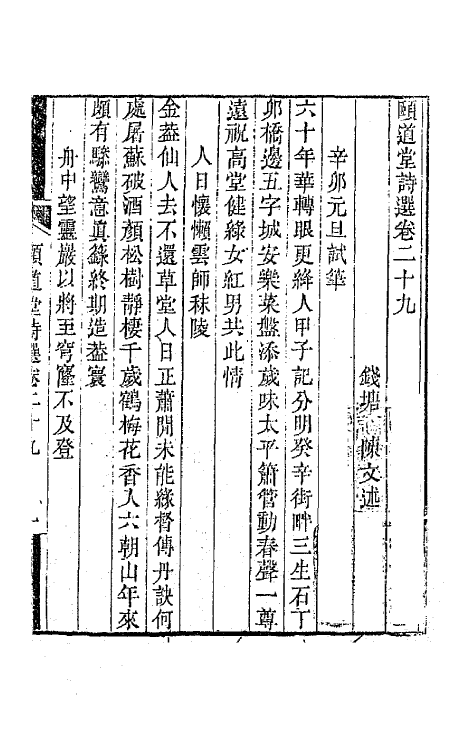 頤道堂詩選卷二十九
錢塘 陳文述
辛卯元旦試筆
六十年華轉眼更絳人甲子記分明癸辛街畔三生石丁
卯橋邊五字城安樂菜盤添歲味太平簫管動春聲一尊
遠祝高堂健綠女紅男共此情
人日懷懶雲師秣陵
金葢仙人去不還草堂人日正蕭閒未能緣督傳丹訣何
處屠蘇破酒顏松樹靜棲千歲鶴梅花香入六朝山年來
頗有驂鸞意真籙終期造葢寰
舟中望靈巖以將至穹窿不及登
頤道堂詩選卷二十九 一